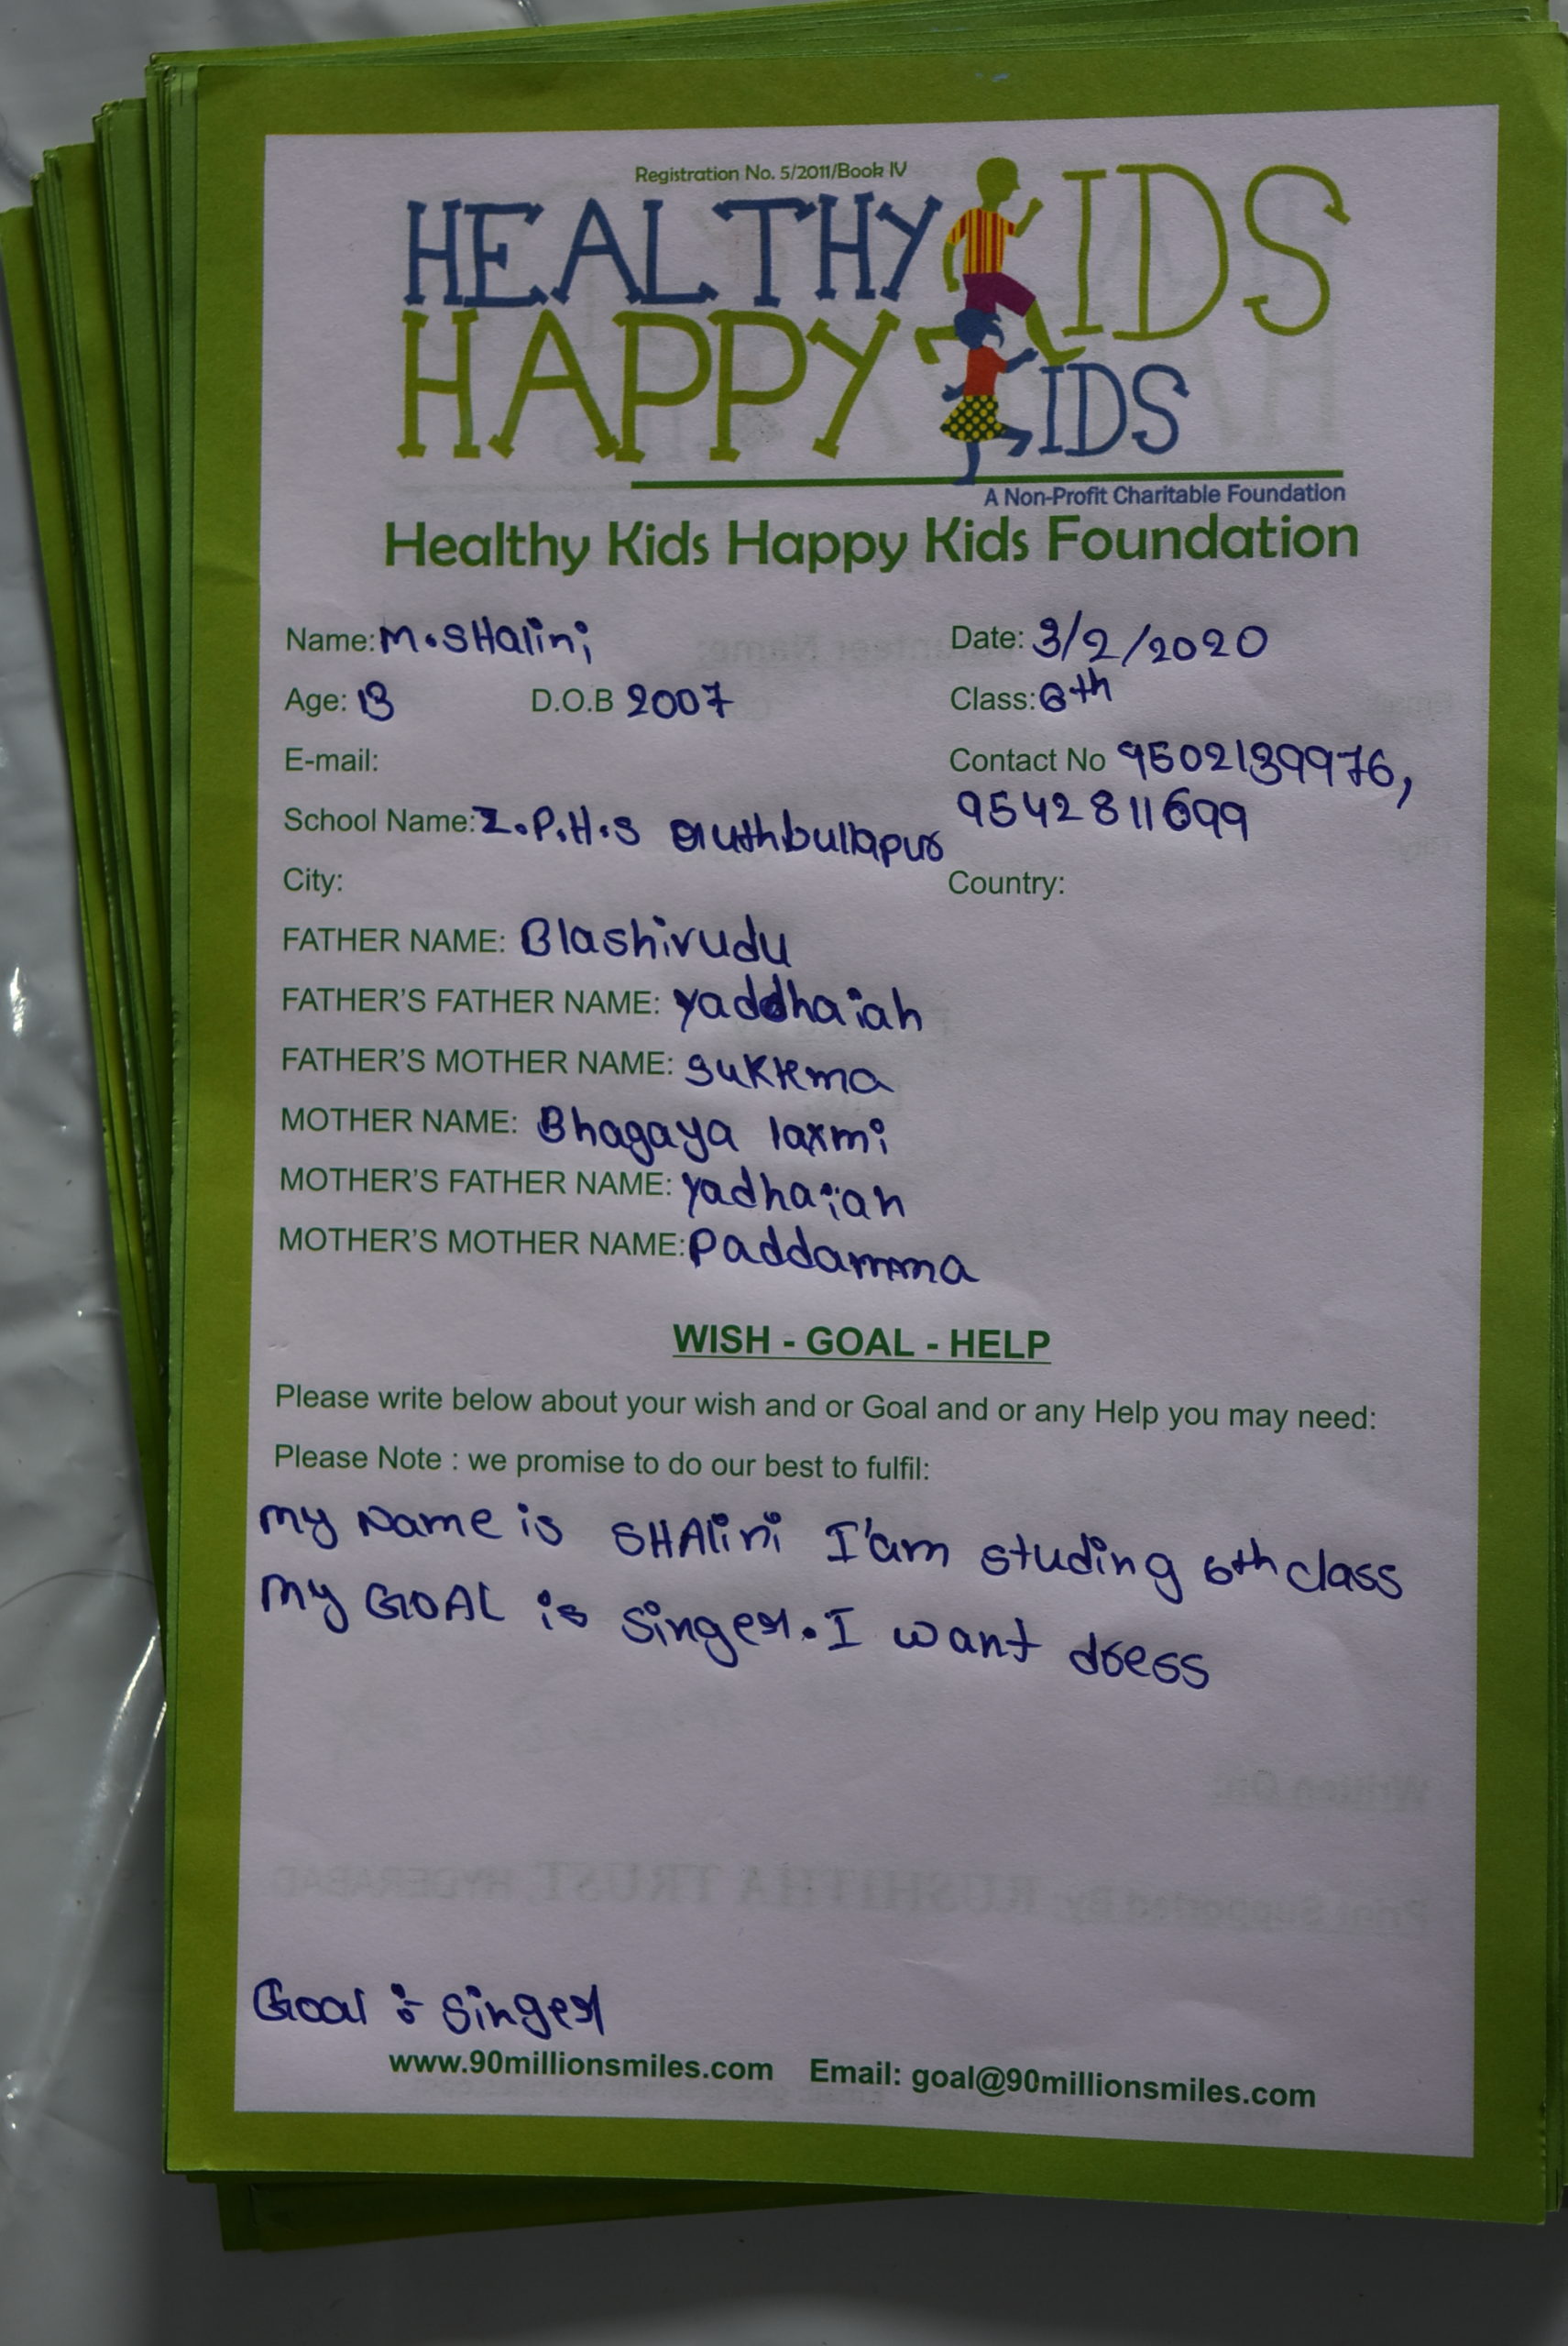 Registration No. 5/2011/Book IV
HEALTHY KIDS
HAPPY KIDS
A Non-Profit Charitable Foundation
Healthy Kids Happy Kids Foundation
Name: M.SHalini Date: 3/2/2020
Age: 13 D.O.B 2007 Class: 6th
E-mail: Contact No 9502139976,
9542811699
School Name: Z.P.H.S
City: Country:
FATHER NAME: Blashirudu
FATHER'S FATHER NAME: yaddhaiah
FATHER'S MOTHER NAME: sukkema
MOTHER NAME: Bhagaya laxmi
MOTHER'S FATHER NAME: yadhaiah
MOTHER'S MOTHER NAME: Paddamma
WISH - GOAL - HELP
Please write below about your wish and or Goal and or any Help you may need:
Please Note : we promise to do our best to fulfil:
my Name is SHAlini I'am studing 6th class
my GOAL is singer. I want dress
Goal :- singer
www.90millionsmiles.com Email: goal@90millionsmiles.com